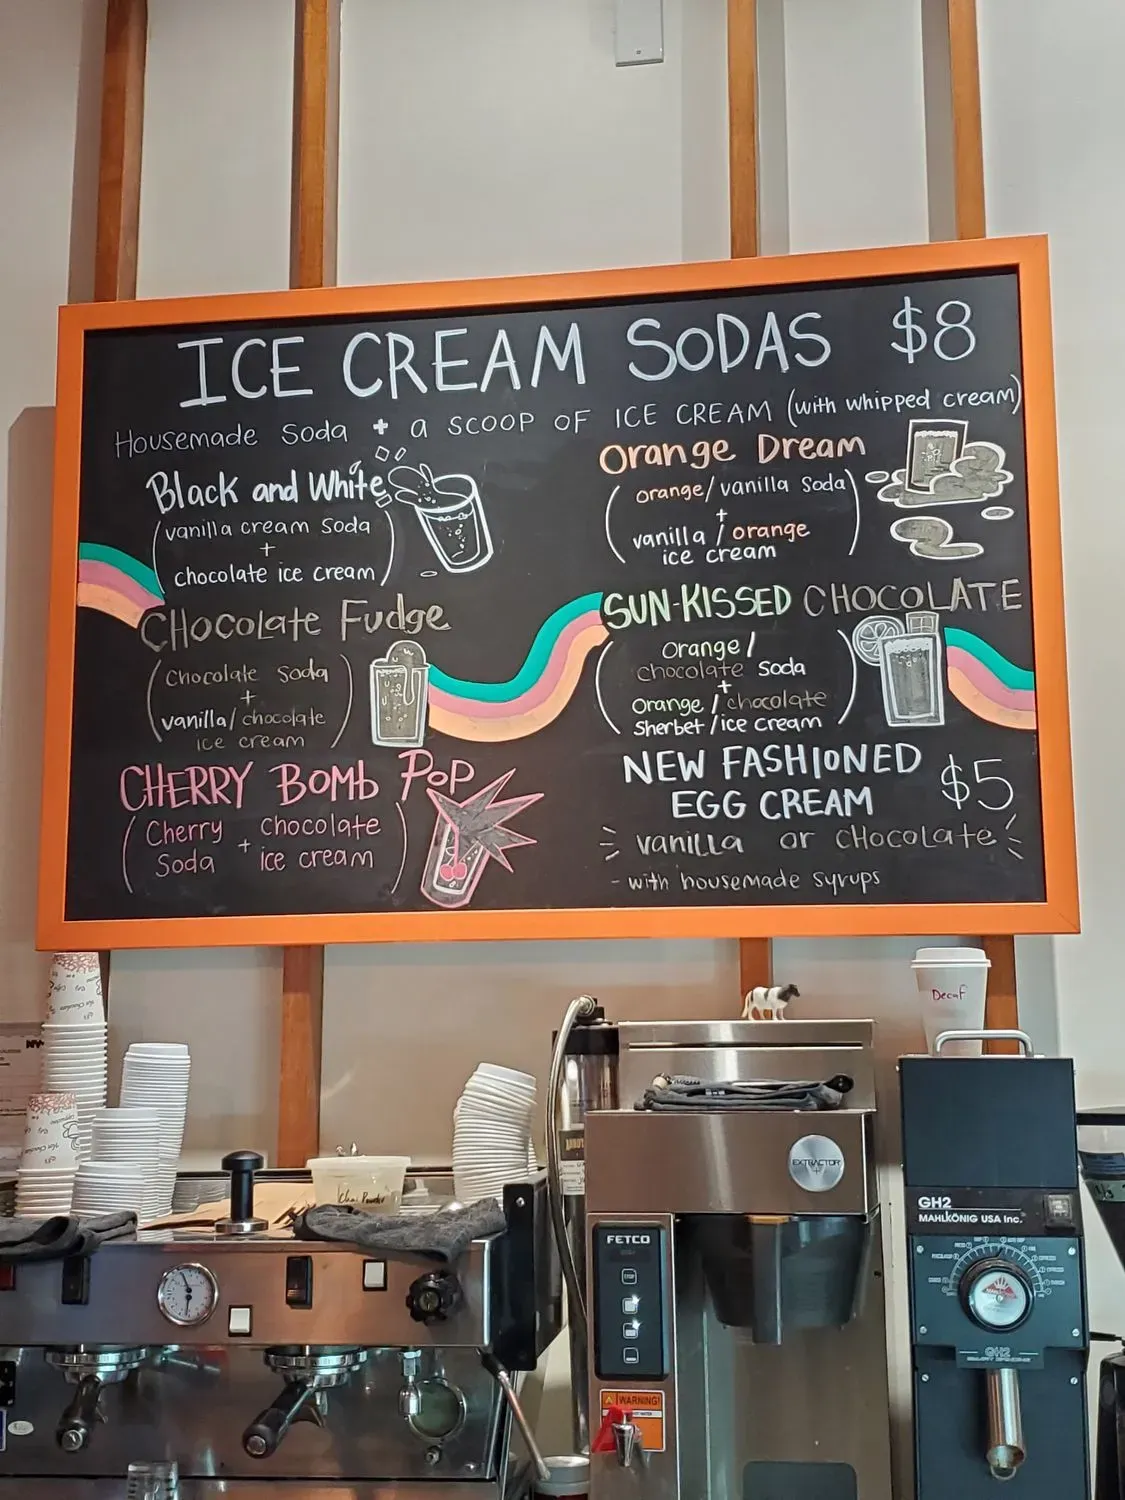 ICE CREAM SODAS $8
Housemade Soda + a SCOOP OF ICE CREAM (with whipped cream)
Black and White
(vanilla cream Soda
+
chocolate ice cream)
CHocolate Fudge
(Chocolate Soda
+
vanilla/chocolate
ice cream)
CHERRY BOMb POP
(Cherry Soda + Chocolate ice cream)
Orange Dream
(orange/vanilla Soda
+
vanilla/orange
ice cream)
SUN-KISSED CHOCOLATE
(Orange/
chocolate Soda
+
Orange/chocolate
Sherbet/ice cream)
NEW FASHIONED
EGG CREAM $5
vanilla or CHOCOLATE
- with housemade syrups
Decaf
EXTRACTOR
FETCO
WARNING!
GH2
MAHLKÖNIG USA Inc.
GH2